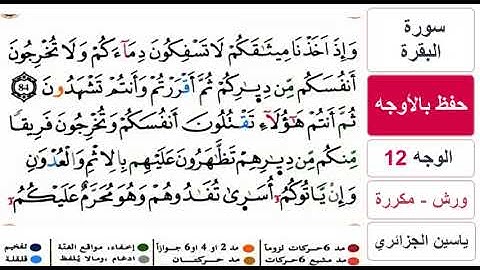 وَإِذَ اَخَذْنَا مِيثَٰقَكُمْ لَا تَسْفِكُونَ دِمَآءَكُمْ وَلَا تُخْرِجُونَ
أَنفُسَكُم مِّن دِيٰ۪رِكُمْ ثُمَّ أَقْرَرْتُمْ وَأَنتُمْ تَشْهَدُونَ 84
ثُمَّ أَنتُمْ هَٰٓؤُلَآءِ تَقْتُلُونَ أَنفُسَكُمْ وَتُخْرِجُونَ فَرِيقاً
مِّنكُم مِّن دِيٰ۪رِهِمْ تَظَّٰهَرُونَ عَلَيْهِم بِالِاثْمِ وَالْعُدْوَٰنِ
وَإِنْ يَّاتُوكُمُۥٓ أُسَٰر۪يٰ تُفَٰدُوهُمْ وَهُوَ مُحَرَّمٌ عَلَيْكُمُۥٓ
سورة
البقرة
حفظ بالأوجه
الوجه 12
ورش - مكررة
ياسين الجزائري
مد 6 حركات لزوماً
مد 2 او 4 او 6 جوازاً
إخفاء، مواقع الغنّة
تفخيم
مد مشبع 6 حركات
مد حركتان
ادغام، ومالا يُلفظ
قلقلة